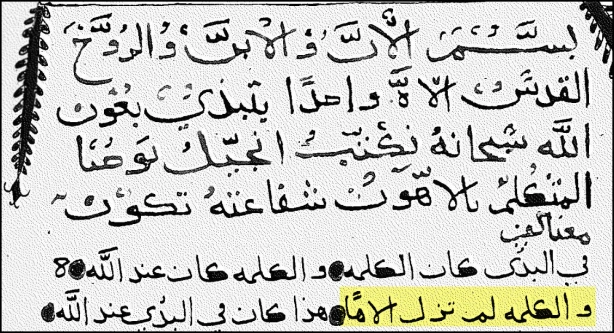 بسم الاب والابن والروح
القدس الاه واحدا يتبدي بعون
الله سبحانه نكتب انجيل يوحنا
المتكلم بالاهوت شفاعته تكون
معنا امين
في البدى كان الكلمه ● و الكلمه كان عند الله ● 8
و الكلمه لم تزل الاها ● هذا كان في البدي عند الله ●